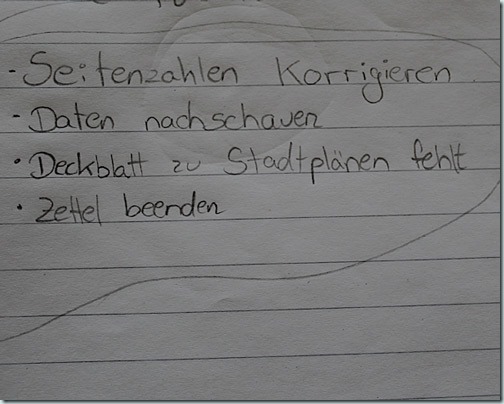 - Seitenzahlen Korrigieren
- Daten nachschauen
• Deckblatt zu Stadtplänen fehlt
• Zettel beenden